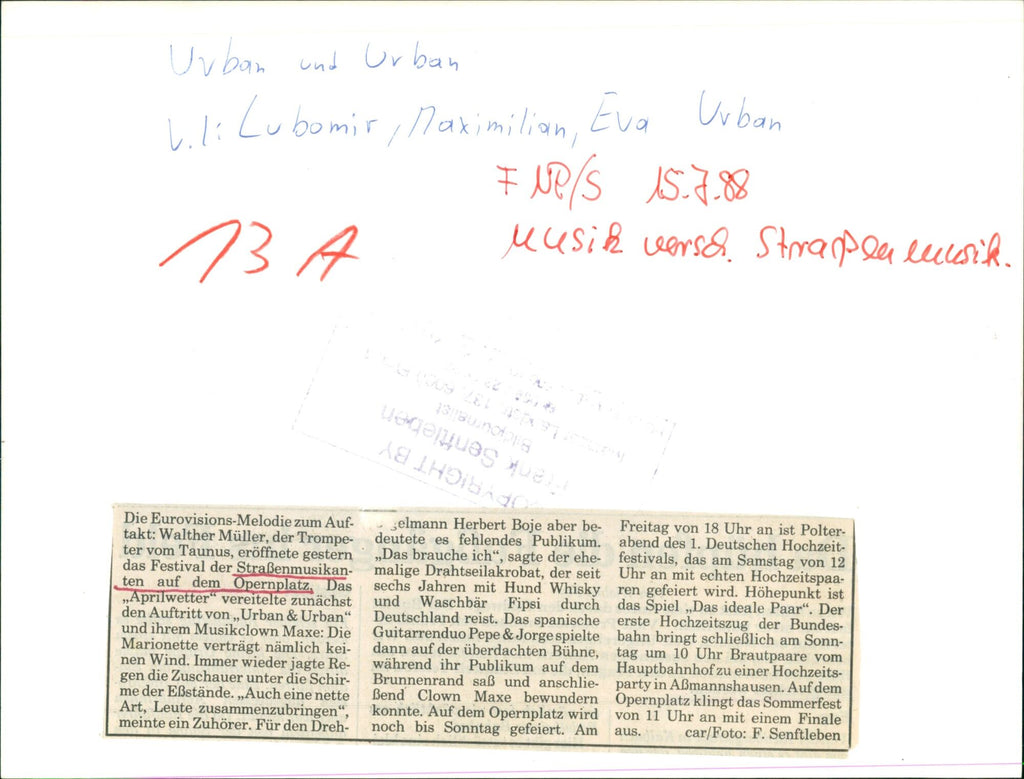 Urban und Urban
v.l: Lubomir, Maximilian, Eva Urban
F NP/S 15.7.88
Musik versch. Straßenmusik.
13 A
COPYRIGHT BY
Frank Senftleben
Bildjournalist
Die Eurovisions-Melodie zum Auf-
takt: Walther Müller, der Trompe-
ter vom Taunus, eröffnete gestern
das Festival der Straßenmusikan-
ten auf dem Opernplatz. Das
„Aprilwetter“ vereitelte zunächst
den Auftritt von „Urban & Urban“
und ihrem Musikclown Maxe: Die
Marionette verträgt nämlich kei-
nen Wind. Immer wieder jagte Re-
gen die Zuschauer unter die Schir-
me der Eßstände. „Auch eine nette
Art, Leute zusammenzubringen“,
meinte ein Zuhörer. Für den Dreh-
gelmann Herbert Boje aber be-
deutete es fehlendes Publikum.
„Das brauche ich“, sagte der ehe-
malige Drahtseilakrobat, der seit
sechs Jahren mit Hund Whisky
und Waschbär Fipsi durch
Deutschland reist. Das spanische
Guitarrenduo Pepe & Jorge spielte
dann auf der überdachten Bühne,
während ihr Publikum auf dem
Brunnenrand saß und anschlie-
ßend Clown Maxe bewundern
konnte. Auf dem Opernplatz wird
noch bis Sonntag gefeiert. Am
Freitag von 18 Uhr an ist Polter-
abend des 1. Deutschen Hochzeit-
festivals, das am Samstag von 12
Uhr an mit echten Hochzeitspaa-
ren gefeiert wird. Höhepunkt ist
das Spiel „Das ideale Paar“. Der
erste Hochzeitszug der Bundes-
bahn bringt schließlich am Sonn-
tag um 10 Uhr Brautpaare vom
Hauptbahnhof zu einer Hochzeits-
party in Aßmannshausen. Auf dem
Opernplatz klingt das Sommerfest
von 11 Uhr an mit einem Finale
aus. car/Foto: F. Senftleben